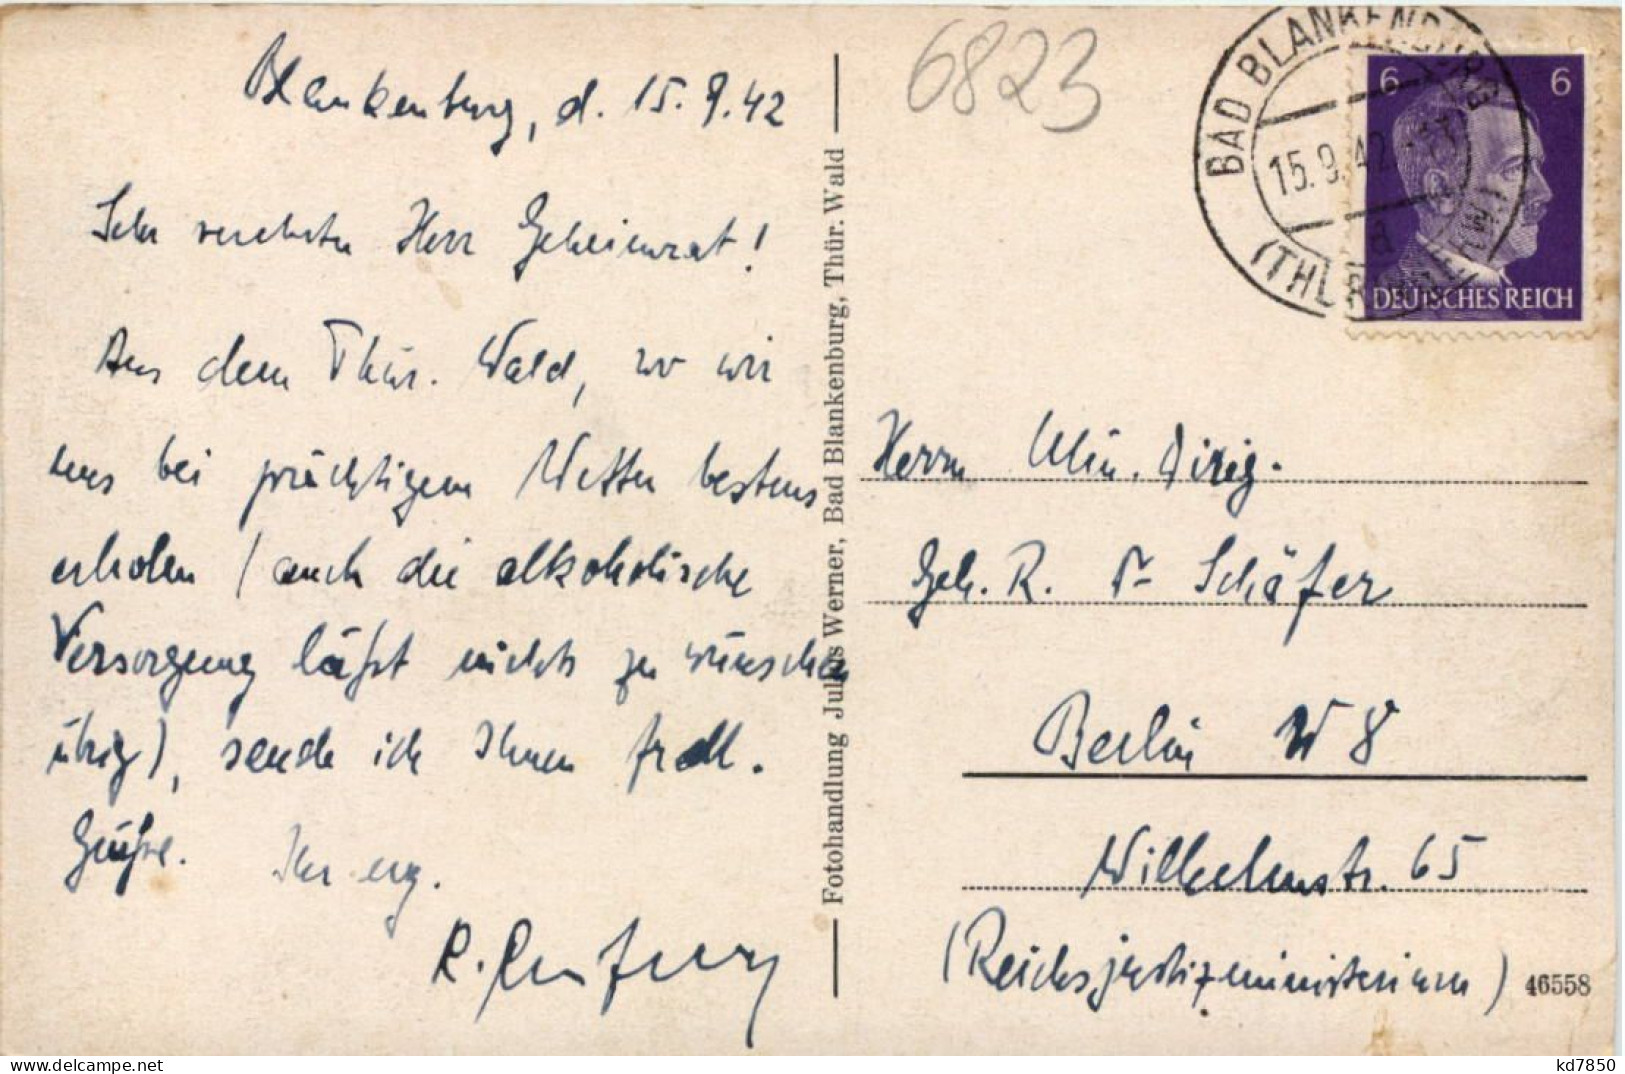 Blankenburg, d. 15.9.42
Sehr verehrter Herr Geheimrat!
Aus dem Thür. Wald, wo wir
uns bei prächtigem Wetter bestens
erholen (auch die alkoholische
Versorgung läßt nichts zu wünschen
übrig), sende ich Ihnen frdl.
Grüße. Ihr erg.
R.
Fotohandlung Julius Werner, Bad Blankenburg, Thür. Wald
6823
BAD BLANKENBURG
15.9.42
(THÜRINGERW)
d
6 6
DEUTSCHES REICH
Herrn Min. Dirig.
Geh. R. Dr Schäfer
Berlin W 8
Wilhelmstr. 65
(Reichsjustizministerium)
46558
delcampe.net
kd7850